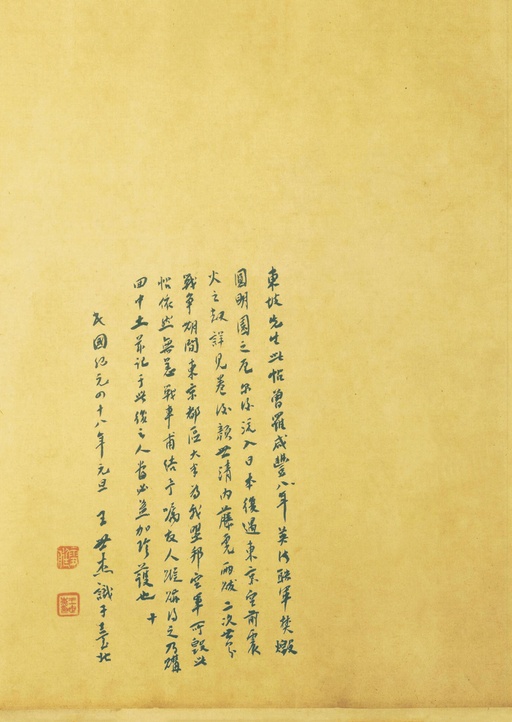 東坡先生此帖曾罹咸豐八年英法聯軍焚燬
圓明園之厄爾後流入日本復遭東京空前震
火之劫詳見卷後顏世清內藤虎兩跋二次世界
戰爭期間東京都區大半為我盟邦空軍所毀此
帖依然無恙戰事甫結予囑友人蹤跡得之乃購
回中土並記于此後之人當必益加珍護也 十
民國紀元四十八年元旦 王世杰識于臺北